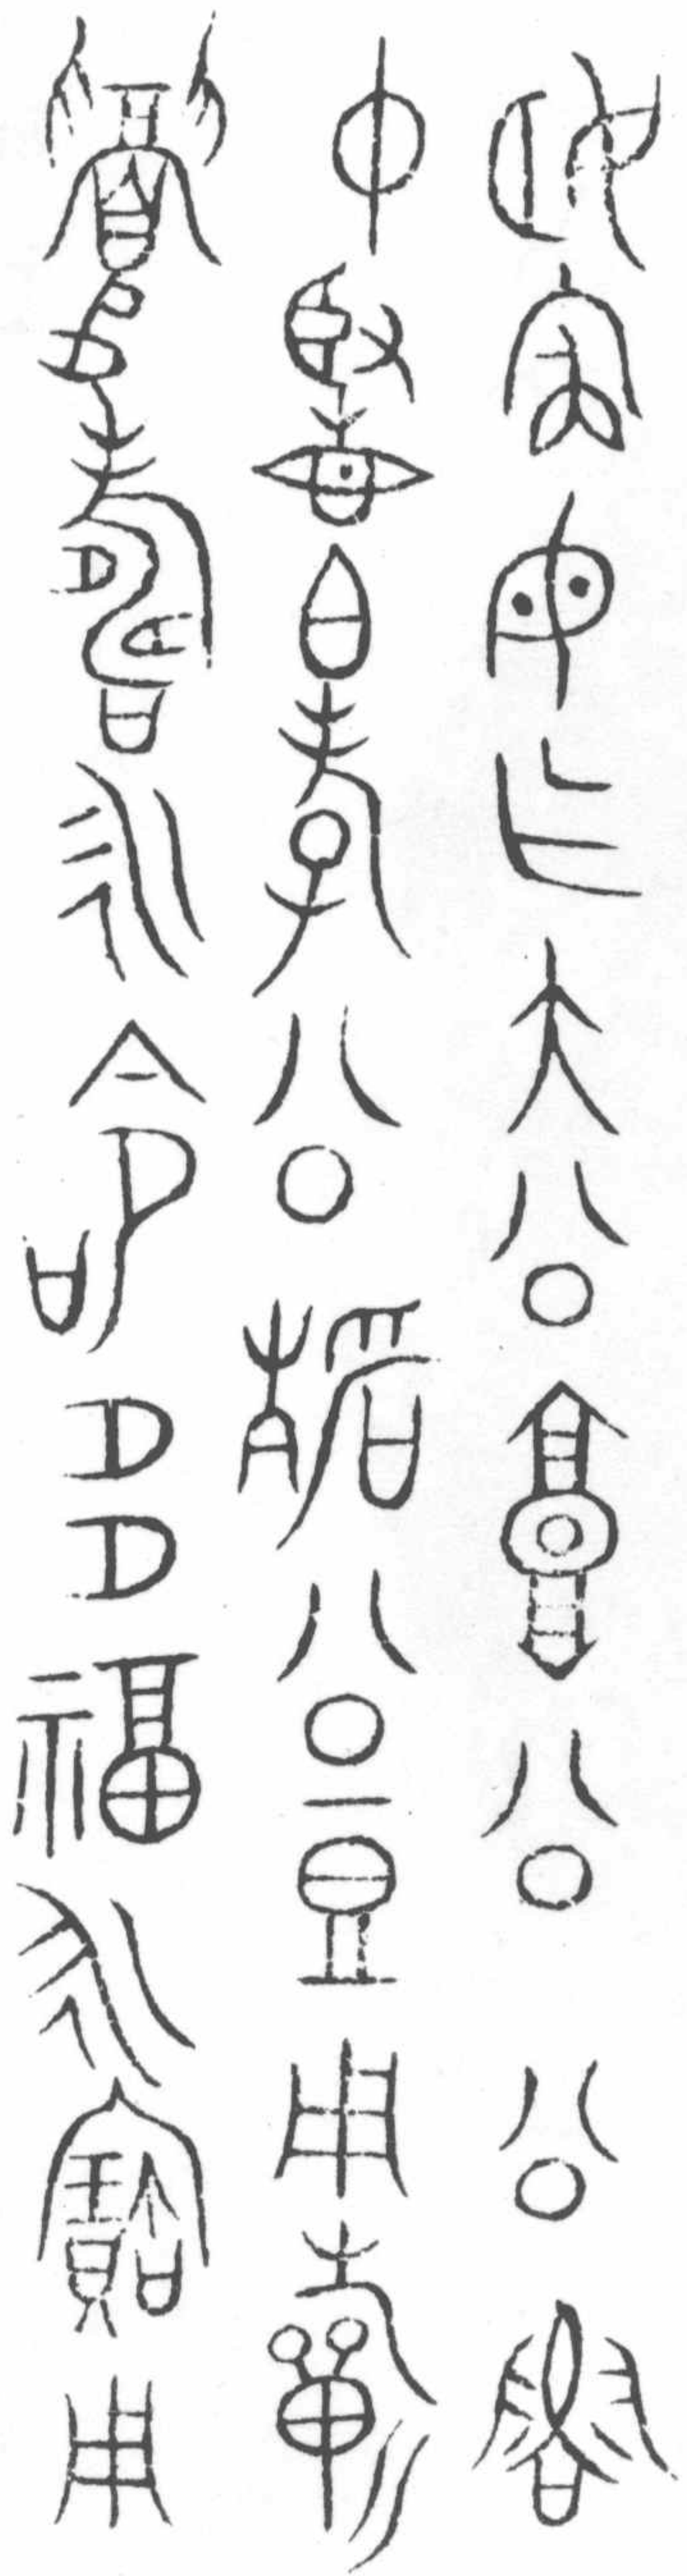 姬寏母乍大公墉公公魯
中臤省白孝公靜公豆用旂
眉壽永命多福永寶用